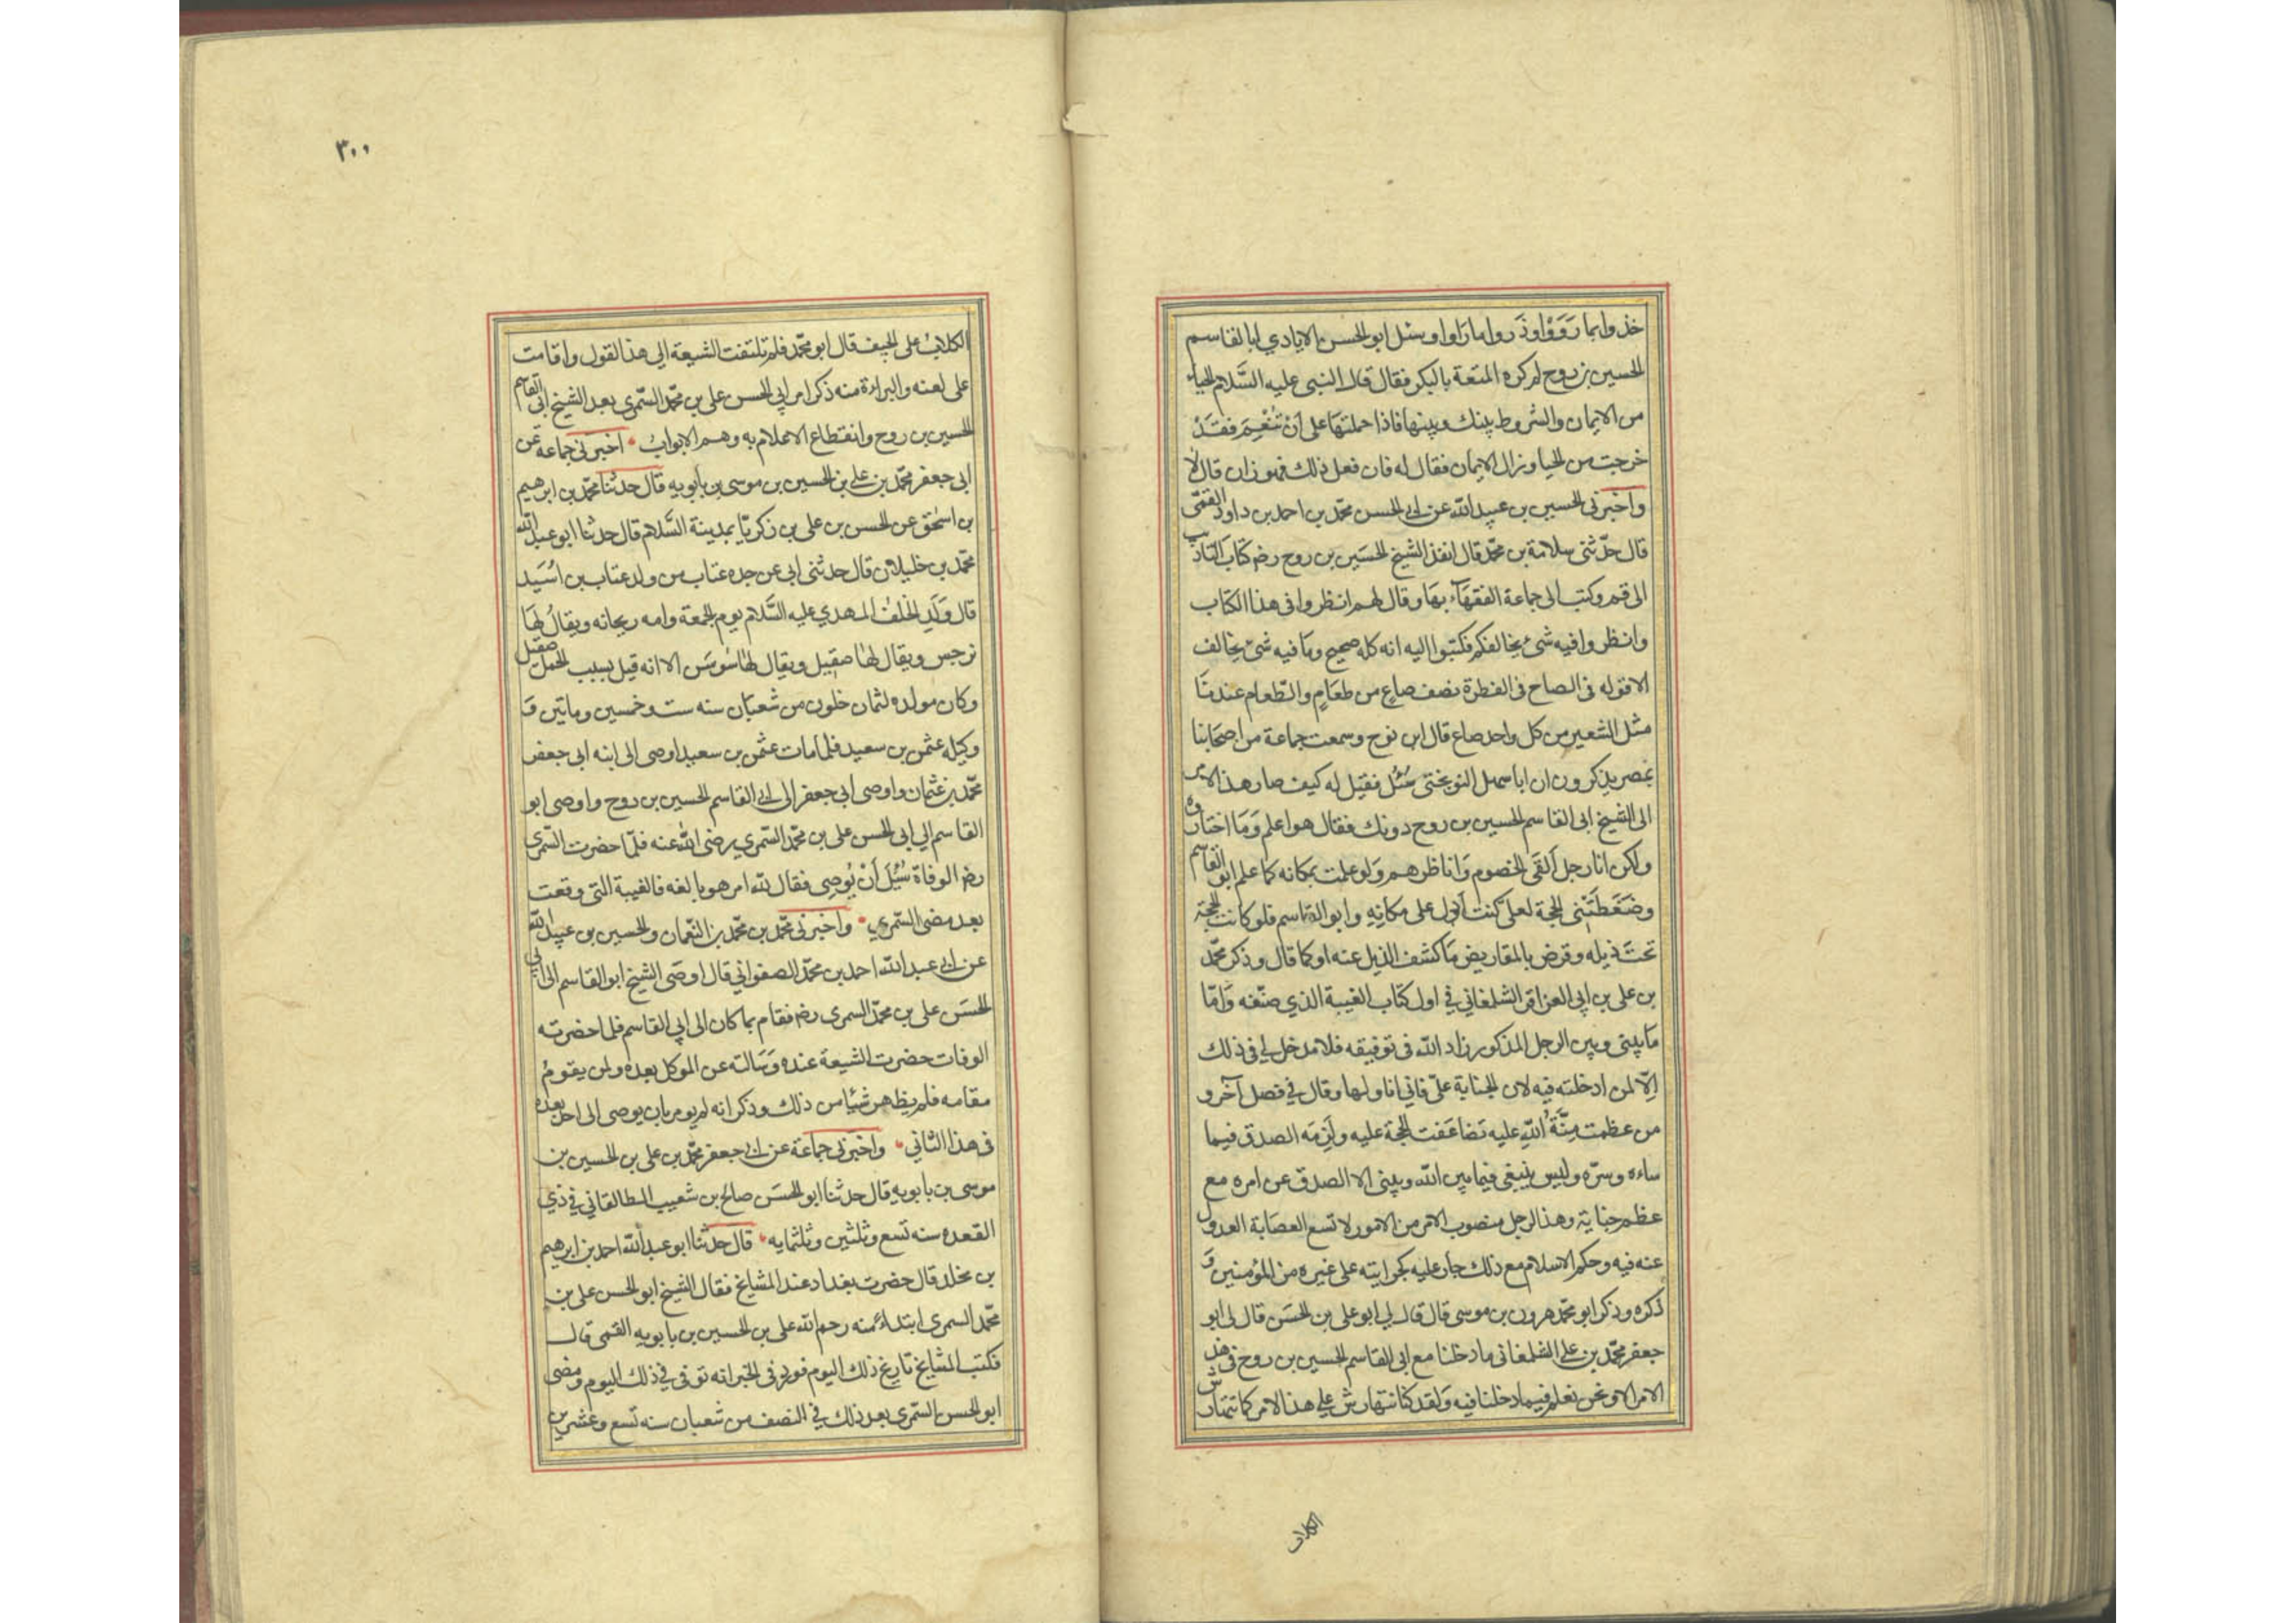 خذوا بما رَوَوْا وذَروا ما رَاَوا وسئل ابو الحسن الايادي ابا القاسم
الحسين بن روح لم كره المتعة بالبكر فقال قال النبى عليه السَّلام الحياء
من الايمان والشروط بينك وبينها فاذا حملتهَا على اَنْ تُنْعِمَ فقَدْ
خرجت من الحيا وزال الايمان فقال له فان فعل ذلك فهو زان قال لا
واخبرنى الحسين بن عبيد الله عن ابى الحسن محمّد بن احمد بن داود القمّى
قال حدّثنى سلامة بن محمّد قال انفذ الشيخ الحسَين بن روح رضه كتابَ التاديب
الى قم وكتب الى جماعة الفقهَآء بهَا وقال لهم انظروا فى هذا الكتاب
وانظروا فيه شئ يخالفكم فكتبوا اليه انه كله صحيح ومَا فيه شئ يخالف
الا قوله فى الصاح فى الفطرة نصف صاعٍ من طعَامٍ والطّعام عندنَا
مثل الشعير من كل واحد صاع قال ابن نوح وسمعت جماعة من اصحَابنا
بمصر يذكرون ان ابا سهل النوبختى سُئل فقيل له كيف صار هذا الامر
الى الشيخ ابى القاسم الحسين بن روح دونك فقال هو اعلم وَمَا اختاروه
ولكن انا رجل اَلقَى الخصوم وَاناظرهم وَلو علمت بمكانه كما علم ابو القاسم
وضَغَطَتْنى الحجة لعلى كنت أدل على مكانِهِ وابو القاسم فلو كانت الحجة
تحتَ ذيله وقرض بالمقاريض مَا كشف الذيل عنه او كما قال وذكر محمّد
بن على بن ابى العزاقر الشلمغاني في اول كتاب الغيبة الذي صنّفه وَامّا
مَا بينى وبين الرجل المذكور زاد الله فى توفيقه فلا مدخل لى فى ذلك
اِلّا لمن ادخلته فيه لان الجناية علىّ فاني انا ولها وقال في فصل آخر و
من عظمت مِنَّةُ اللهِ عليه تضاعَفت الحجة عليه ولَزِمَه الصدق فيما
ساءه وسرّه وليس ينبغى فيما بين الله وبينى الا الصدق عن امره مع
عظم جنايته وهذا الرجل منصوب الامر من الامور لا تسع العصَابة العدول
عنه فيه وحكم الاسلام مع ذلك جار عليه كجرايته على غيره من المؤمنين وَ
ذكره وذكر ابو محمّد هرون بن موسى قال قال لى ابو على بن الحسَن قال لى ابو
جعفر محمّد بن على الشلمغانى ما دخلنا مع ابى القاسم الحسين بن روح فى هذا
الامر الا ونحن نعلم فيما دخلنا فيه وَلقد كنا نتهارش على هذا الامر كما تتهارش
الكلاب
٣٠٠
الكلابُ على الجيف قال ابو محمّد فلم تلتفت الشيعة الى هذا القول واقامت
على لعنه والبراءة منه ذكر امر ابى الحسن على بن محمّد السّمرى بعد الشيخ ابى القاسم
الحسين بن روح وانقطاع الاعلام به وهم الابواب اخبرنى جماعة عن
ابى جعفر محمّد بن على بن الحسين بن موسى بن بابويه قال حدثنا محمّد بن ابرهيم
بن اسحٰق عن الحسن بن على بن زكريّا بمدينة السَّلام قال حدثنا ابو عبد الله
محمّد بن خليلان قال حدثنى ابى عن جده عتاب من ولد عتاب بن اُسَيد
قال وَلَدِ الخلف المهدي عليه السَّلام يوم الجمعة وامه ريحانه ويقالُ لهَا
نرجس ويقال لهٰا صقيل ويقال لهٰا سُوسَن الا انه قيل بسبب الحمل صقيل
وكان مولده لثمان خلون من شعبَان سنه ست وخمسين وماتين وَ
وكيله عثمن بن سعيد فلما مات عثمن بن سعيد اوصى الى ابنه ابى جعفر
محمّد بن عثمان واوصى ابى جعفر الى ابى القاسم الحسين بن روح واوصى ابو
القاسم الى ابى الحسن على بن محمّد السّمري رضى الله عنه فلمّا حضرت السّمرى
رضه الوفاة سُئِلَ أَنْ يُوصى فقال لله امر هو بالغه فالغيبة التى وقعت
بعد مضى السّمري واخبرنى محمّد بن محمّد بن النّعمان والحسين بن عبيد الله
عن ابى عبد الله احمد بن محمّد الصفواني قال اوصَى الشيخ ابو القاسم الى ابى
الحسَن على بن محمّد السمرى رضه فقام بما كان الى ابى القاسم فلما حضرته
الوفات حضرت الشيعة عنده وَسَالته عن الموكل بعده ولمن يقومُ
مقامه فلم يظهر شيًا من ذلك وذكر انه لم يومر بان يوصى الى احد بعده
فى هذا الثانى واخبرنى جماعة عن ابى جعفر محمّد بن على بن الحسين بن
موسى بن بابويه قال حدثنا ابو الحسَن صالح بن شعيب الطالقاني في ذي
القعده سنه تسع وثلثين وثلثمايه قال حدثنا ابو عبد الله احمد بن ابرهيم
بن مخلد قال حضرت بغداد عند المشايخ فقال الشيخ ابو الحسن على بن
محمّد السمرى ابتداءً منه رحم الله على بن الحسين بن بابويه القمى قال
فكتب المشايخ تاريخ ذلك اليوم فورد فى الخبر انه توفى في ذلك اليوم ومضى
ابو الحسن السّمرى بعد ذلك في النصف من شعبان سنه تسع وعشرين